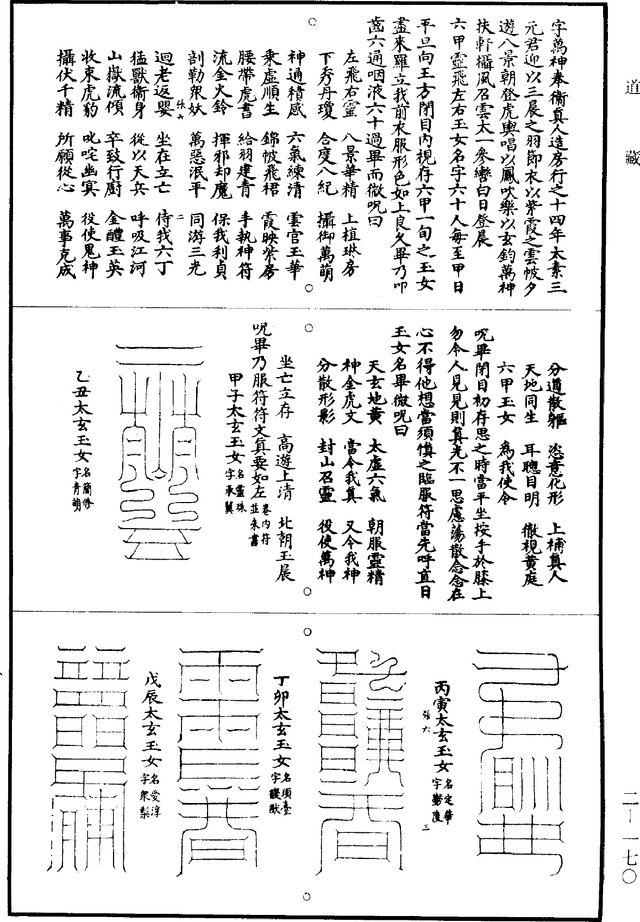 道藏
字萬神奉衞真人造房行之十四年太素三
元君迎以三晨之羽節衣以紫霞之雲帔夕
遊八景朝登虎輿唱以鳳吹樂以玄鈞萬神
扶軒攝風召雲太一參轡白日登晨
六甲靈飛左右玉女名字六十人每至甲日
平旦向王方閉目內視存六甲一旬之玉女
盡來羅立我前衣服形色如上良久畢乃叩
齒六通咽液六十過畢而微呪曰
左飛右靈 八景華精 上植琳房
下秀丹瓊 合度八紀 攝御萬萌
神通積感 六氣練清 雲宮玉華
乘虛順生 錦帔飛裙 霞映紫房
腰帶虎書 給羽建青 手執神符
流金火鈴 揮邪却魔 保我利貞
剖勒眾妖 萬惡泯平 同游三光
張六 二
迴老返嬰 坐在立亡 侍我六丁
猛獸衞身 從以天兵 呼吸江河
山嶽流傾 卒致行厨 金醴玉英
收束虎豹 叱咤幽冥 役使鬼神
攝伏千精 所願從心 萬事克成
分道散軀 恣意化形 上補真人
天地同生 耳聰目明 徹視黃庭
六甲玉女 為我使令
呪畢閉目初存思之時當平坐按手於膝上
勿令人見見則真光不一思慮蕩散念念在
心不得他想當須慎之臨服符當先呼直日
玉女名畢微呪曰
天玄地黃 太虛六氣 朝服靈精
神金虎文 當令我真 又令我神
分散形影 封山召靈 役使萬神
坐亡立存 高遊上清 北朝玉晨
呪畢乃服符符文真要如左卷內符並朱書
甲子太玄玉女名靈珠字承翼
乙丑太玄玉女名蘭修字青萌
丙寅太玄玉女名定華字鬱陵
張六 三
丁卯太玄玉女名須臺字
戊辰太玄玉女名愛淳字眾梨
二—一七〇